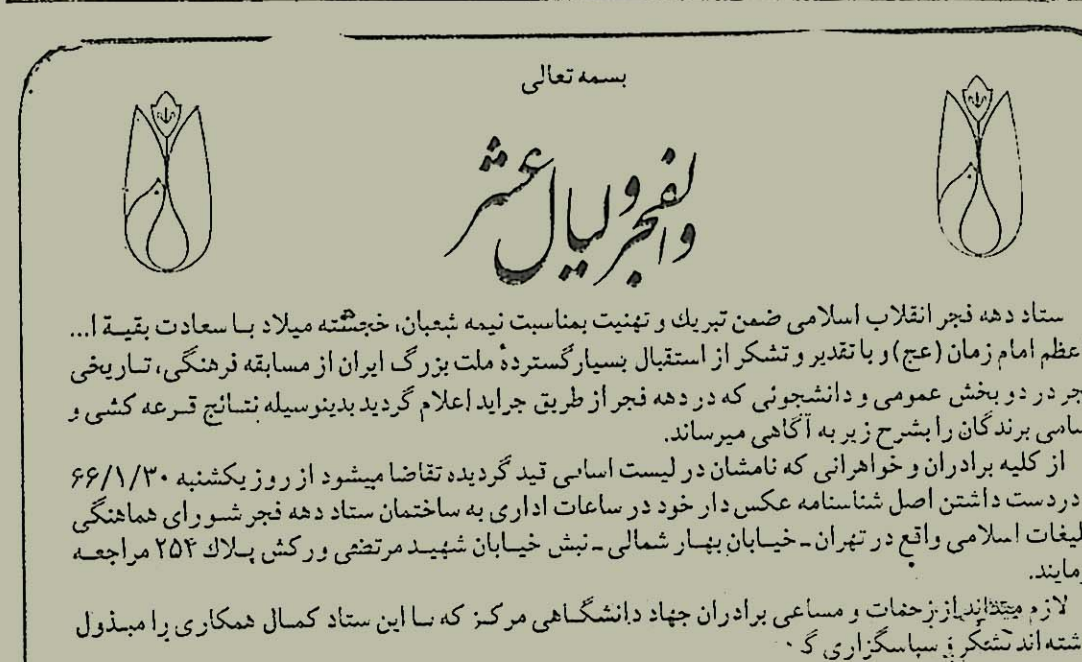 بسمه تعالی
والفجر ولیال عشر
ستاد دهه فجر انقلاب اسلامی ضمن تبریك و تهنیت بمناسبت نیمه شعبان، خجسته میلاد با سعادت بقیة ا...
عظم امام زمان (عج) و با تقدیر و تشکر از استقبال بسیار گستردهٔ ملت بزرگ ایران از مسابقه فرهنگی، تاریخی
جر در دو بخش عمومی و دانشجوئی که در دهه فجر از طریق جراید اعلام گردید بدینوسیله نتائج قرعه کشی و
سامی برندگان را بشرح زیر به آگاهی میرساند.
از کلیه برادران و خواهرانی که نامشان در لیست اسامی قید گردیده تقاضا میشود از روز یکشنبه ۶۶/۱/۳۰
دردست داشتن اصل شناسنامه عکس دار خود در ساعات اداری به ساختمان ستاد دهه فجر شورای هماهنگی
لیغات اسلامی واقع در تهران ـ خیابان بهار شمالی ـ نبش خیابان شهید مرتضی ورکش پلاك ۲۵۴ مراجعه
مایند.
لازم میداند از زحمات و مساعی برادران جهاد دانشگاهی مرکز که با این ستاد کمال همکاری را مبذول
شته اند تشکر و سپاسگزاری